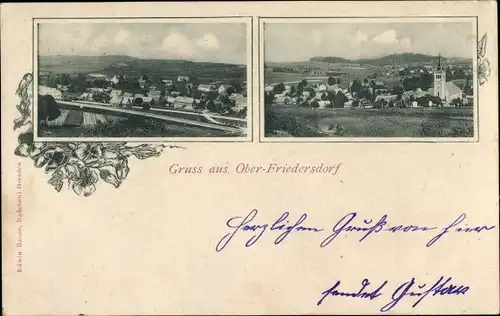 Gruss aus Ober-Friedersdorf
Herzlichen Gruß von hier
sendet Gustav
Edwin Bauer, Radebeul-Dresden